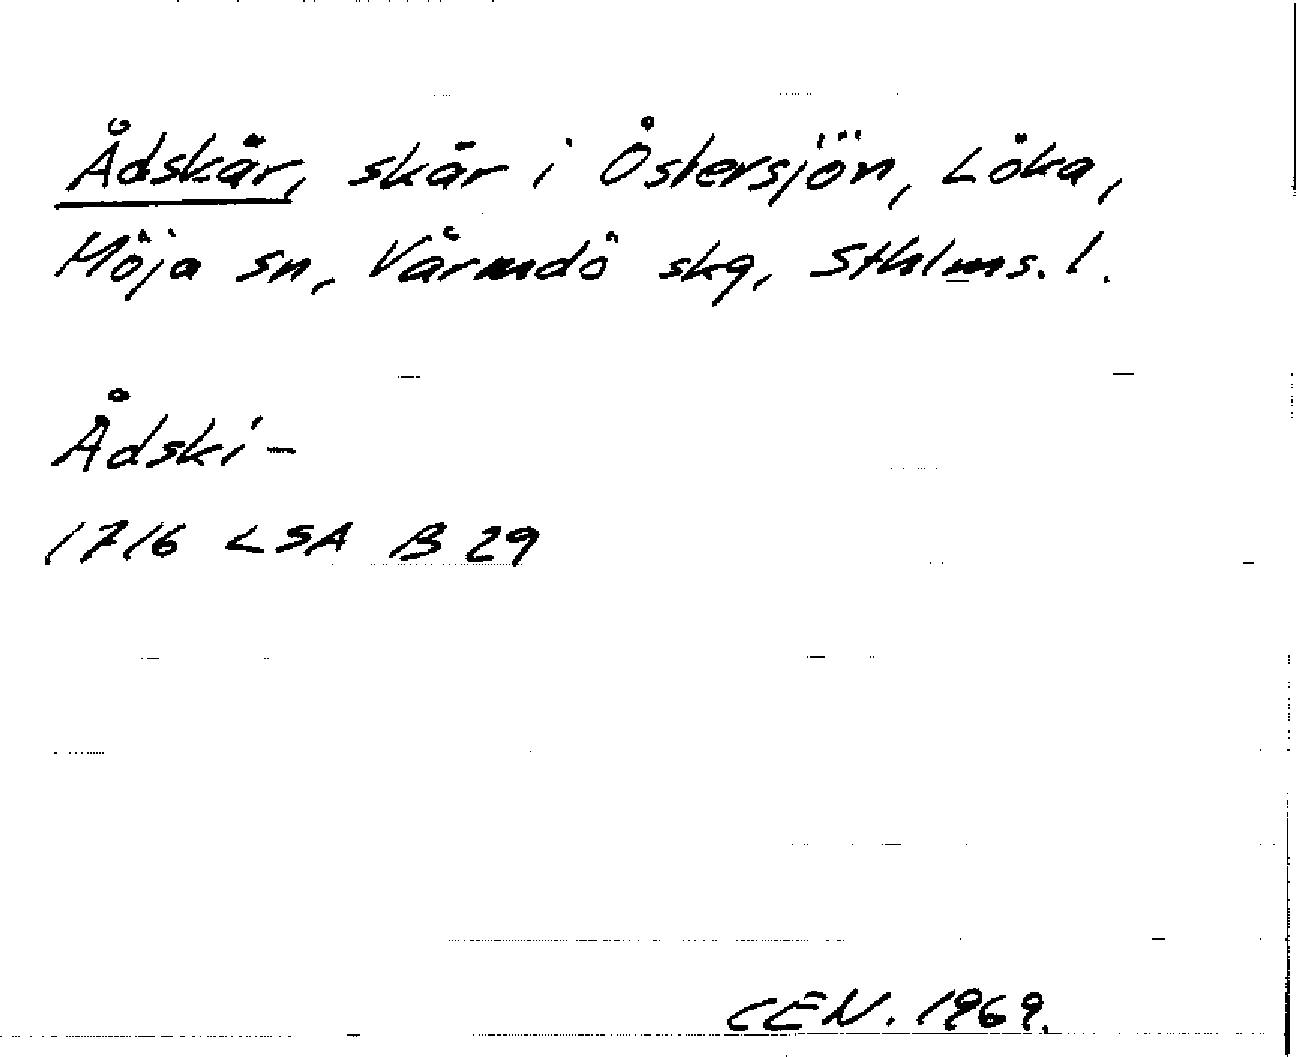 Ådskär, skär i Östersjön, Löka,
Möja sn, Värmdö skg, Sthlms. l.
Ådski-
1716 LSA B 29
CEN. 1969.